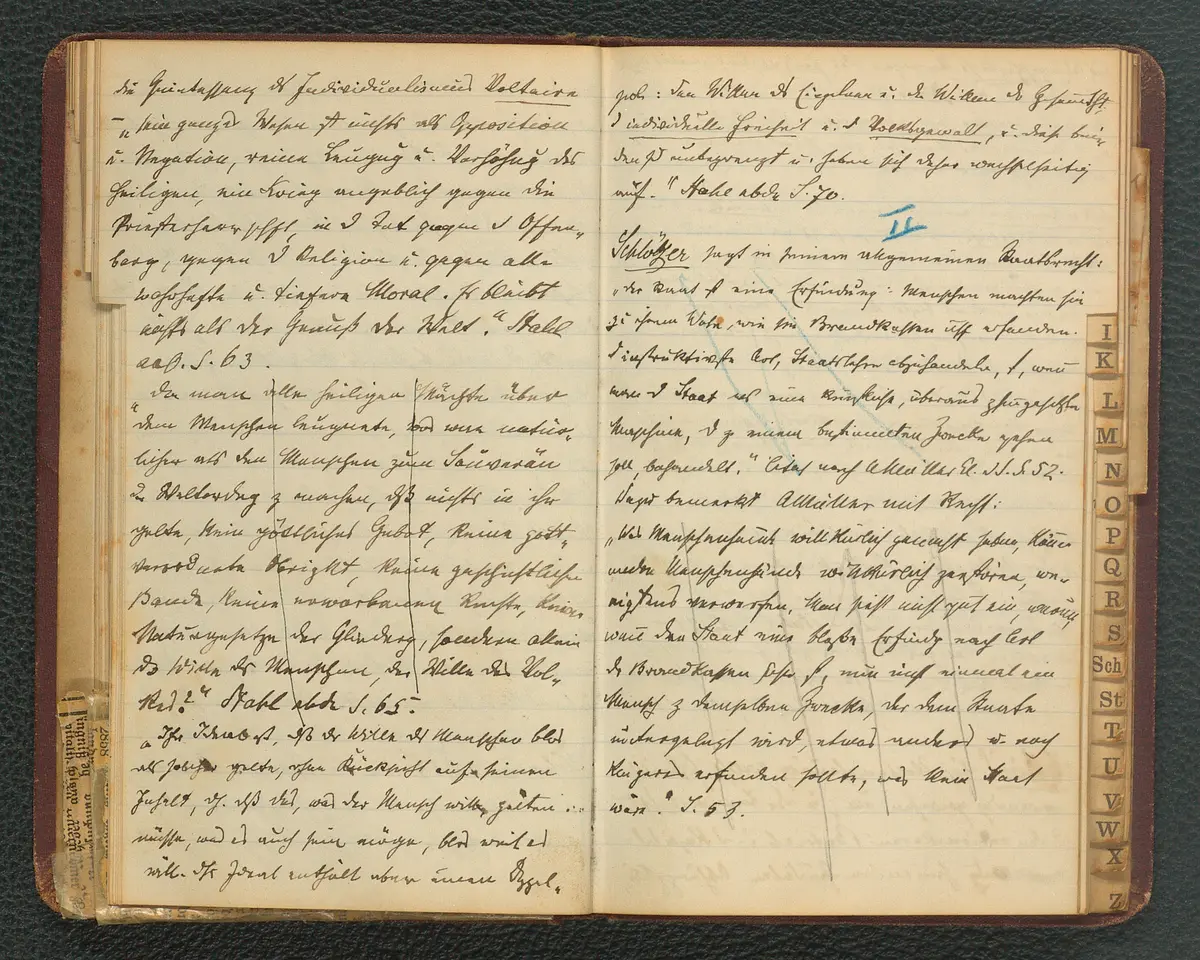 die Quintessenz des Individualismus Voltaire
"sein ganzes Wesen ist nichts als Opposition
u. Negation, reine Leugnung u. Verhöhnung des
Heiligen, ein Krieg angeblich gegen die
Priesterherrschaft, in d Tat gegen d Offen-
barg, gegen d Religion u. gegen alle
wahrhafte u. tiefere Moral. Es bleibt
nichts als der Genuß der Welt." Stahl
aaO. S. 63.
"Da man alle heiligen Mächte über
dem Menschen leugnete, was war natür-
licher als den Menschen zum Souverän
der Weltordng z machen, daß nichts in ihr
gelte, kein göttliches Gebot, keine gott-
verordnete Obrigkt, keine geschichtlichen
Bande, keine erworbenen Rechte, keine
Naturgesetze der Gliederg, sondern allein
der Wille des Menschen, der Wille des Vol-
kes?" Stahl ebda S. 65.
"Ihr Ideal ist, daß der Wille des Menschen blos
als solcher gelte, ohne Rücksicht auf seinen
Inhalt, dh. daß das, was der Mensch will, gelten
müsse, was es auch sein möge, blos weil er es
will. Dies Ideal enthält aber einen Doppel-
pols: den Willen des Einzelnen u. den Willen der Gesamtht,
d individuelle Freiheit u. d Volksgewalt, u. diese bei-
den sd unbegrenzt u. heben sich daher wechselseitig
auf." Stahl ebda S. 70.
II
Schlötzer sagt in seinem allgemeinen Staatsrecht:
"der Staat ist eine Erfindung: Menschen machten sie
zu ihrem Wohl, wie sie Brandkassen usf erfanden.
d instruktivste Art, Staatslehre abzuhandeln, ist, wenn
man d Staat als eine künstliche, überaus zsngesetzte
Maschine, d z einem bestimmten Zwecke gehen
soll, behandelt." Citat nach AMüller El. S. 52.
Dazu bemerkt AMüller mit Recht:
"Was Menschenhände willkürlich gemacht haben, können
andere Menschenhände willkürlich zerstören, we-
nigstens verwerfen. Man sieht nicht gut ein, warum,
wenn der Staat eine bloße Erfindg nach Art
der Brandkassen ist, nun nicht einmal ein
Mensch z demselben Zwecke, der dem Staate
untergelegt wird, etwas anderes u. noch
klügeres erfinden sollte, was kein Staat
wäre." S. 53.
I
K
L
M
N
O
P
Q
R
S
Sch
St
T
U
V
W
X
Z